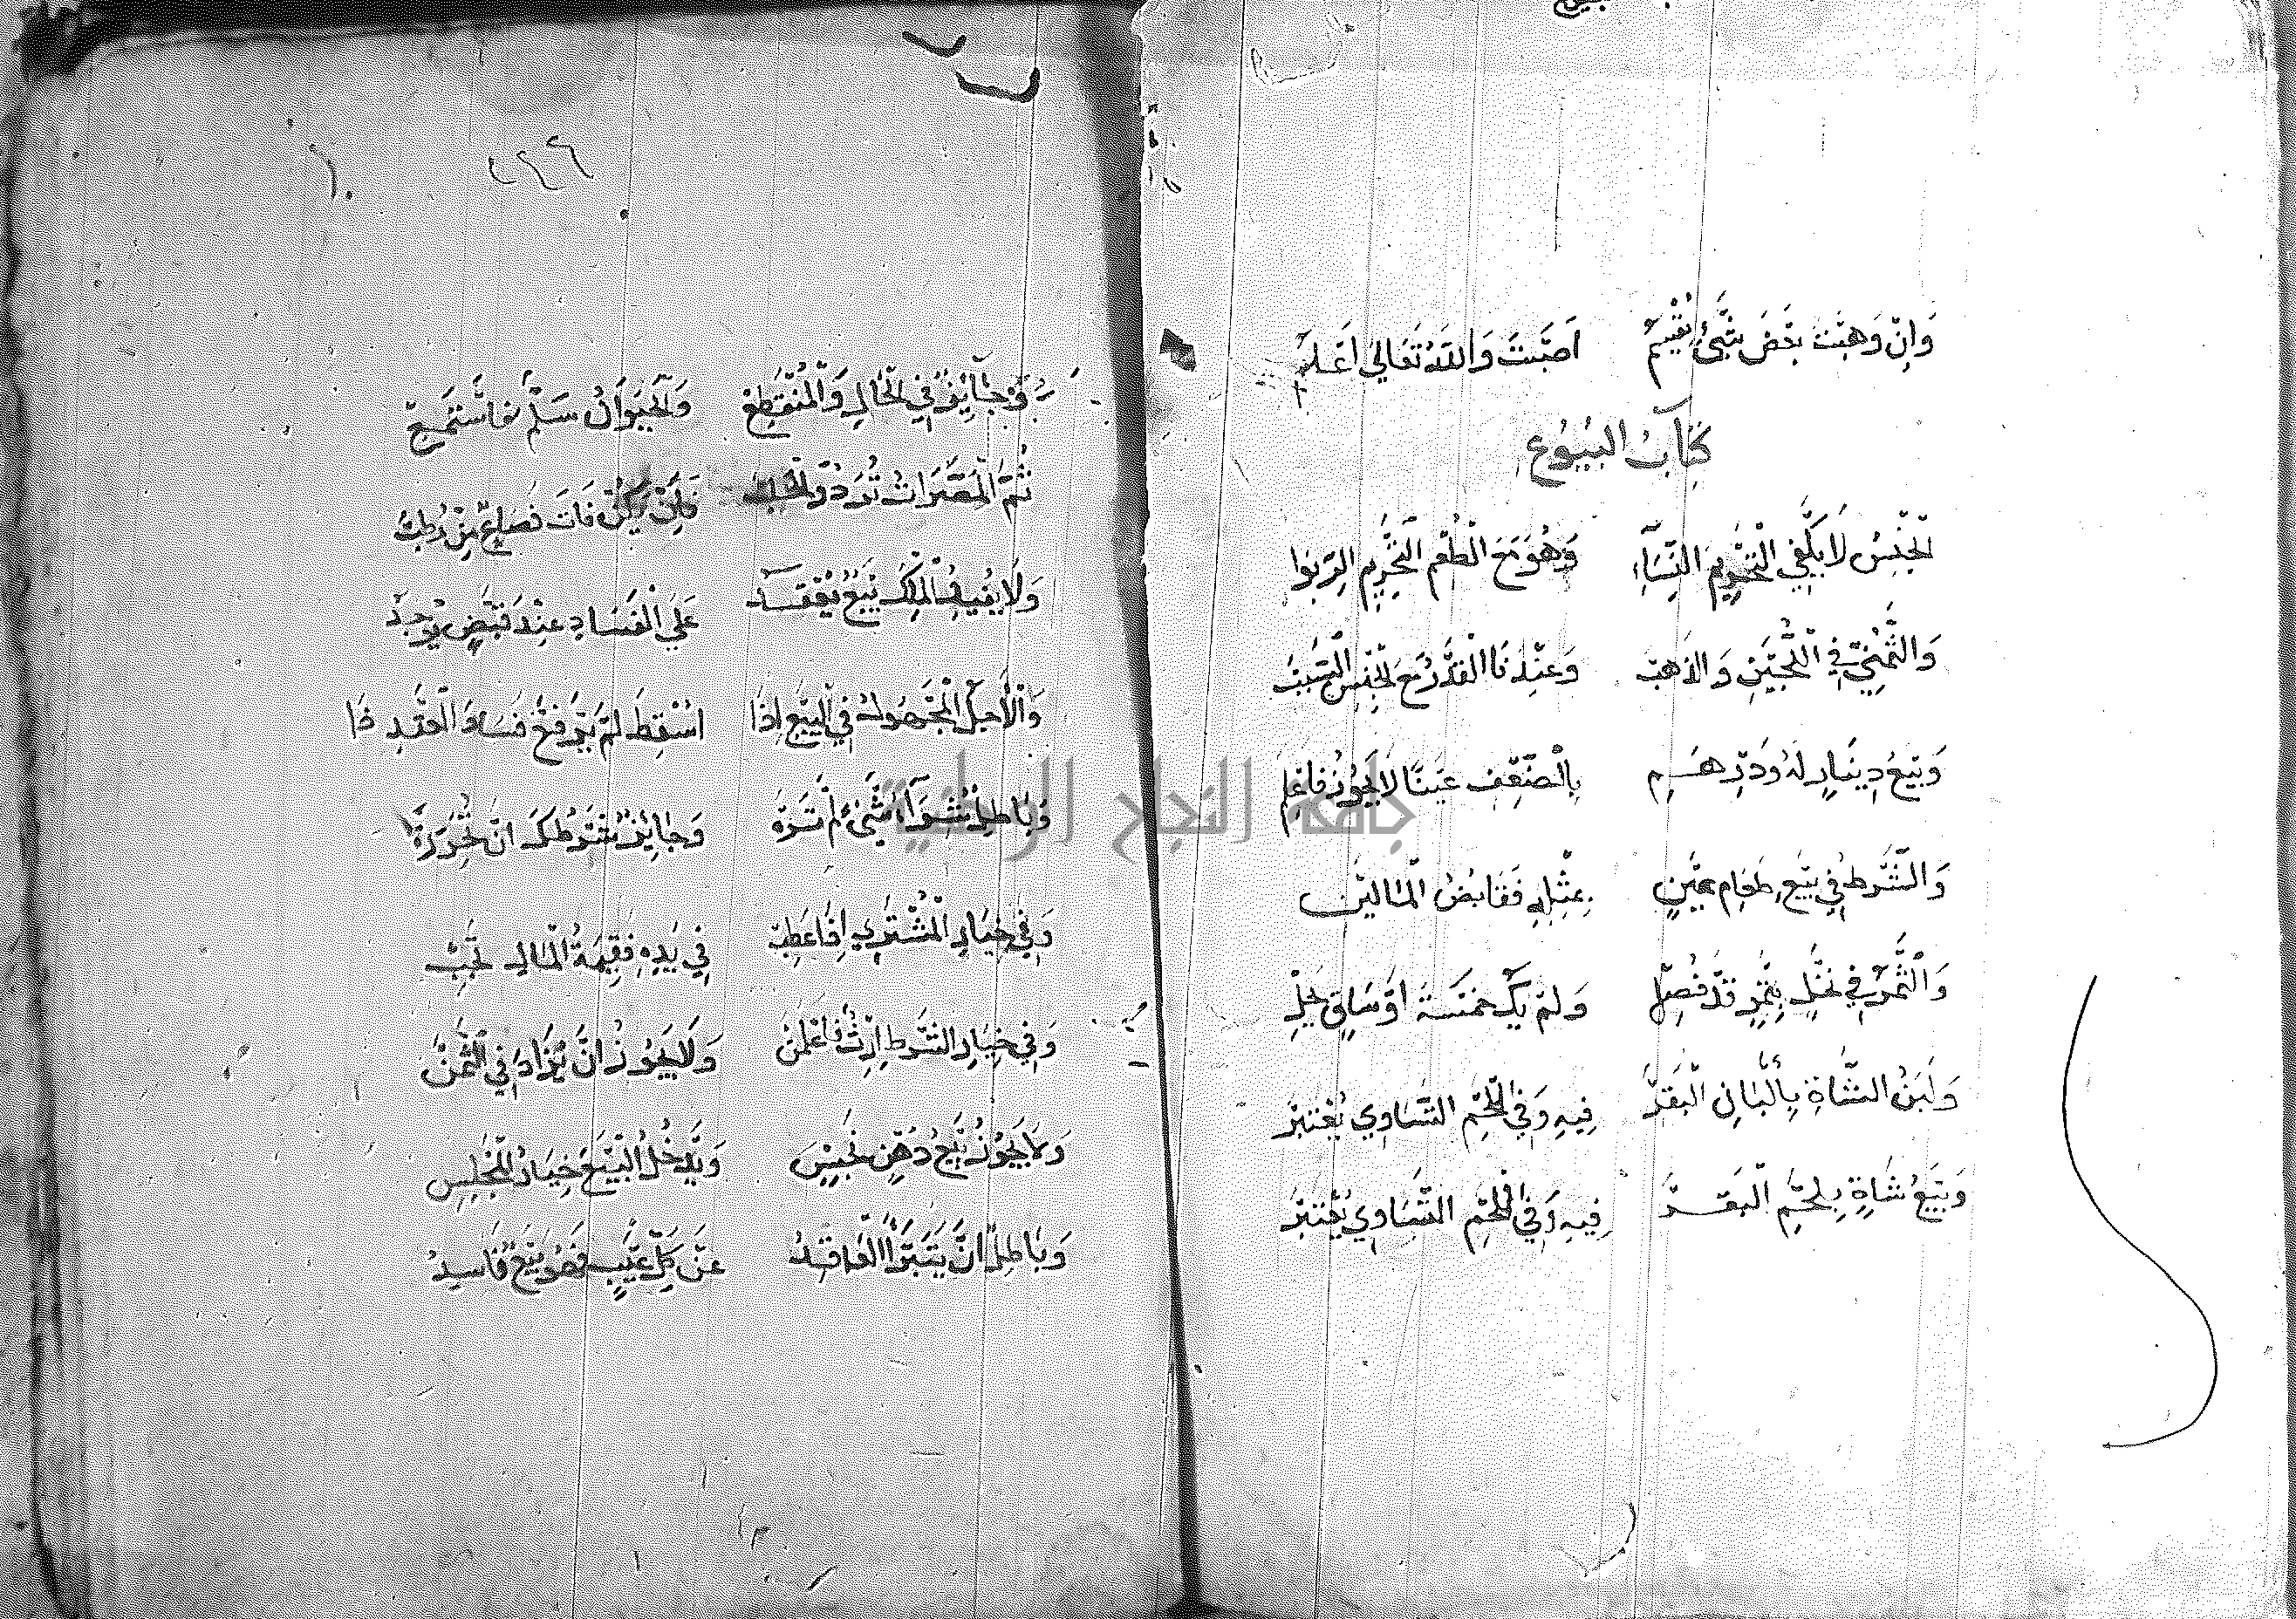 وَاِنْ وَهَبْتَ بَعْضَ شَيْءٍ يُقْسَمُ اَصَبْتَ وَاللّٰهُ تَعَالٰي اَعْلَمُ
كِتَابُ الْبُيُوْعِ
اَلْجِنْسُ لَا يَكْفِي لِتَحْرِيْمِ النَّسَاءِ وَهُوَ مَعَ الْطُّعْمِ لِتَحْرِيْمِ الرِّبٰوا
وَالثَّمَنِيُّ فِي اللُّجَيْنِ وَالذَّهَبْ وَعِنْدَنَا الْقَدْرُ مَعَ الْجِنْسِ السَّبَبْ
وَبَيْعُ دِيْنَارٍ لَهُ وَدِرْهَمِ بِالضِّعْفِ عَيْنًا لَا يَجُوْزُ فَاعْلَمِ
وَالشَّرْطُ فِي بَيْعِ طَعَامٍ عَيْنٍ بِمِثْلِهِ تَقَابُضُ الْمَالَيْنِ
وَالثَّمَرُ فِي نَخْلٍ بِتَمْرٍ قَدْ فُصِلْ وَلَمْ يَكُ خَمْسَةَ اَوْسَاقٍ يَحِلْ
وَلَبَنُ الشَّاةِ بِاَلْبَانِ الْبَقَرْ فِيْهِ وَفِي اللَّحْمِ التَّسَاوِي يُعْتَبَرْ
وَبَيْعُ شَاةٍ بِلَحْمِ الْبَقَرْ فِيْهِ وَفِي اللَّحْمِ التَّسَاوِي يُعْتَبَرْ
٢٢٦
وَجَايِزٌ فِي الْحَالِ وَالْمُنْقَطِعْ وَالْحَيَوَانُ سَلَمٌ فَاسْتَمِعْ
ثُمَّ الْمُصَرَّاتُ تُرَدُّ وَالْحَلَبْ فَاِنْ يَكُنْ فَاتَ فَصَاعٌ مِنْ رُطَبْ
وَلَا يُفِيْدُ الْمِلْكَ بَيْعٌ يُعْقَدُ عَلَي الْفَسَادِ عِنْدَ قَبْضٍ يُوْجَدُ
وَالْاَجَلُ الْمَجْهُوْلُ فِي الْبَيْعِ اِذَا اُسْقِطَ لَمْ يَرْفَعْ فَسَادَ الْعَقْدِ ذَا
وَبَاطِلٌ شِرَآءُ شَيْءٍ لَمْ تَرَهْ وَجَايِزٌ شَرْطُكَ اَنْ تُحَرِّرَهْ
وَفِي خِيَارِ الْمُشْتَرِي اِذَا عَطِبْ فِي يَدِهِ فَقِيْمَةُ الْمَالِ تَجِبْ
وَفِي خِيَارِ الشَّرْطِ اِرْثٌ فَاعْلَمَنْ وَلَا يَجُوْزُ اَنْ يُزَادَ فِي الثَّمَنْ
وَلَا يَجُوْزُ بَيْعُ دُهْنٍ نَجِسِ وَيَدْخُلُ الْبَيْعَ خِيَارُ الْمَجْلِسِ
وَبَاطِلٌ اَنْ يَتَبَرَّا الْعَاقِدُ عَنْ كُلِّ عَيْبٍ فَهُوَ بَيْعٌ فَاسِدُ
جامعة النجاح الوطنية